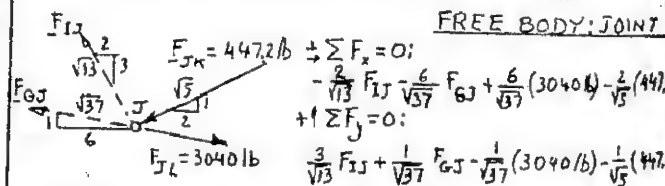 FREE BODY: JOINT
F_IJ
2
√13 3
F_JK = 447.2 lb
√5 1
2
F_GJ
√37 J
1
6
F_JL = 3040 lb
+→ ΣF_x = 0:
- 2/√13 F_IJ - 6/√37 F_GJ + 6/√37 (3040 lb) - 2/√5 (447.
+↑ ΣF_y = 0:
3/√13 F_IJ + 1/√37 F_GJ - 1/√37 (3040 lb) - 1/√5 (447.